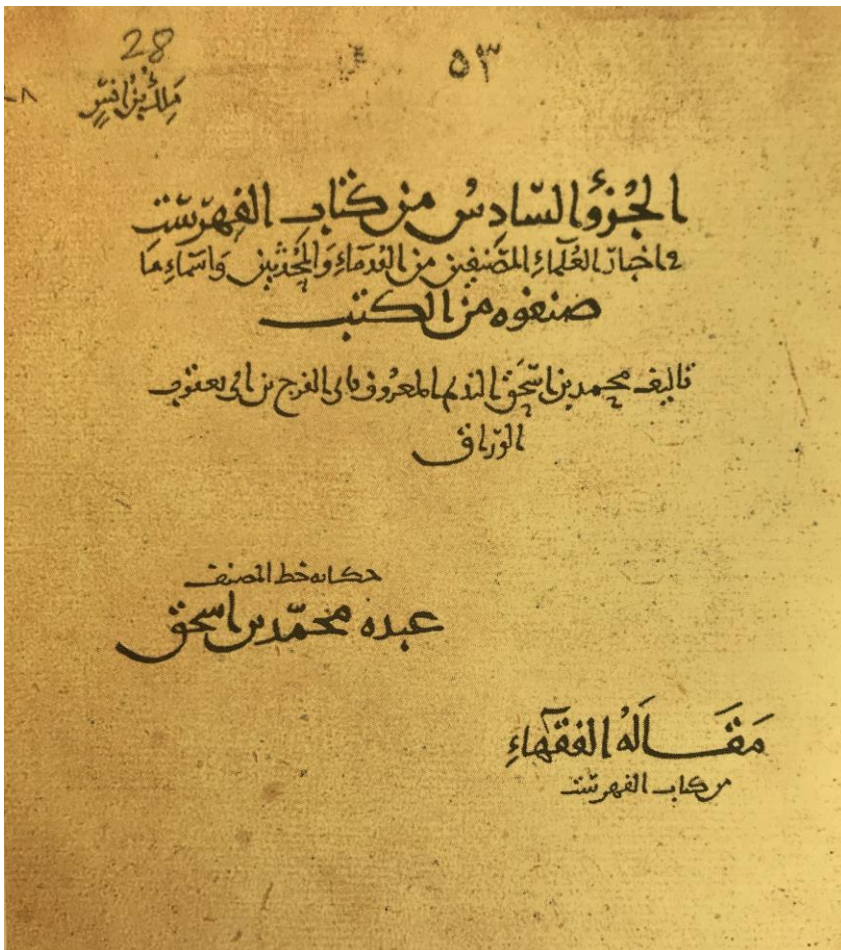 28
٥٣
ملك بن انس
الجُزءُ السّادِسُ من كتاب الفِهرّست
في اخبار العُلَماءِ المصَنّفين من القُدَماءِ وَالمُحْدَثين وَاسْماءِ مَا
صنفوه من الكتب
تاليف محمد بن اسحٰق النديم المعروف بابي الفرج بن ابي يعقوب
الورّاق
حكايه خط المصنف
عبده محمّد بن اسحق
مَقَالَهُ الفقَهاءِ
من كتاب الفهرست